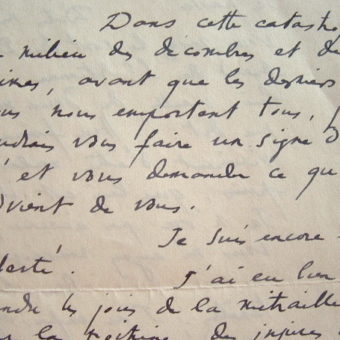 Dans cette catastro
milieu des décombres et de
ines, avant que les derniers
us nous emportent tous, j
udrais vous faire un signe d
et vous demander ce qu
vient de vous.
Je suis encore
lesté. J'ai eu bien
endre les joies de la mitraille
la des injures